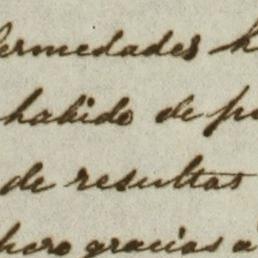 ermedades h
habido de p
de resultas
pero gracias a